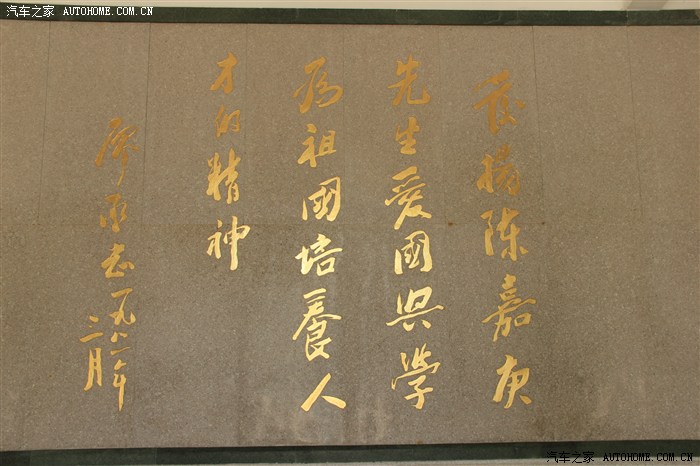 汽车之家 AUTOHOME.COM.CN
发揚陈嘉庚
先生爱國兴学
为祖國培養人
才的精神
廖承志一九八一年
三月
汽车之家 AUTOHOME.COM.CN